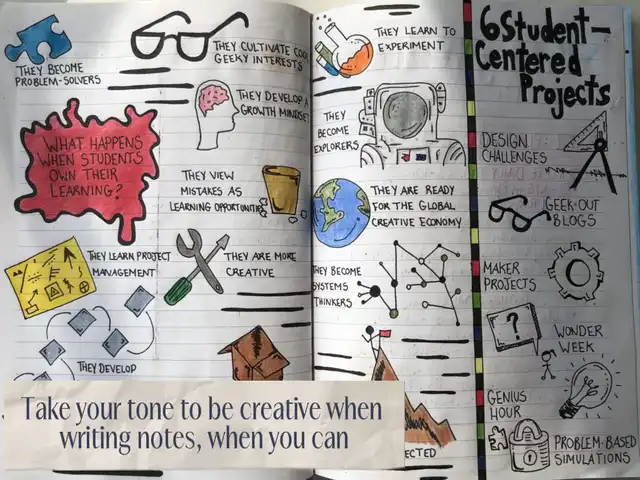 THEY BECOME
PROBLEM-SOLVERS
THEY CULTIVATE COOL
GEEKY INTERESTS
THEY DEVELOP A
GROWTH MINDSET
WHAT HAPPENS
WHEN STUDENTS
OWN THEIR
LEARNING?
THEY VIEW
MISTAKES AS
LEARNING OPPORTUNITIES
THEY LEARN PROJECT
MANAGEMENT
THEY ARE MORE
CREATIVE
THEY DEVELOP
THEY LEARN TO
EXPERIMENT
THEY
BECOME
EXPLORERS
THEY ARE READY
FOR THE GLOBAL
CREATIVE ECONOMY
THEY BECOME
SYSTEMS
THINKERS
6 Student-
Centered
Projects
DESIGN
CHALLENGES
GEEK-OUT
BLOGS
MAKER
PROJECTS
?
WONDER
WEEK
GENIUS
HOUR
PROBLEM-BASED
SIMULATIONS
Take your tone to be creative when
writing notes, when you can